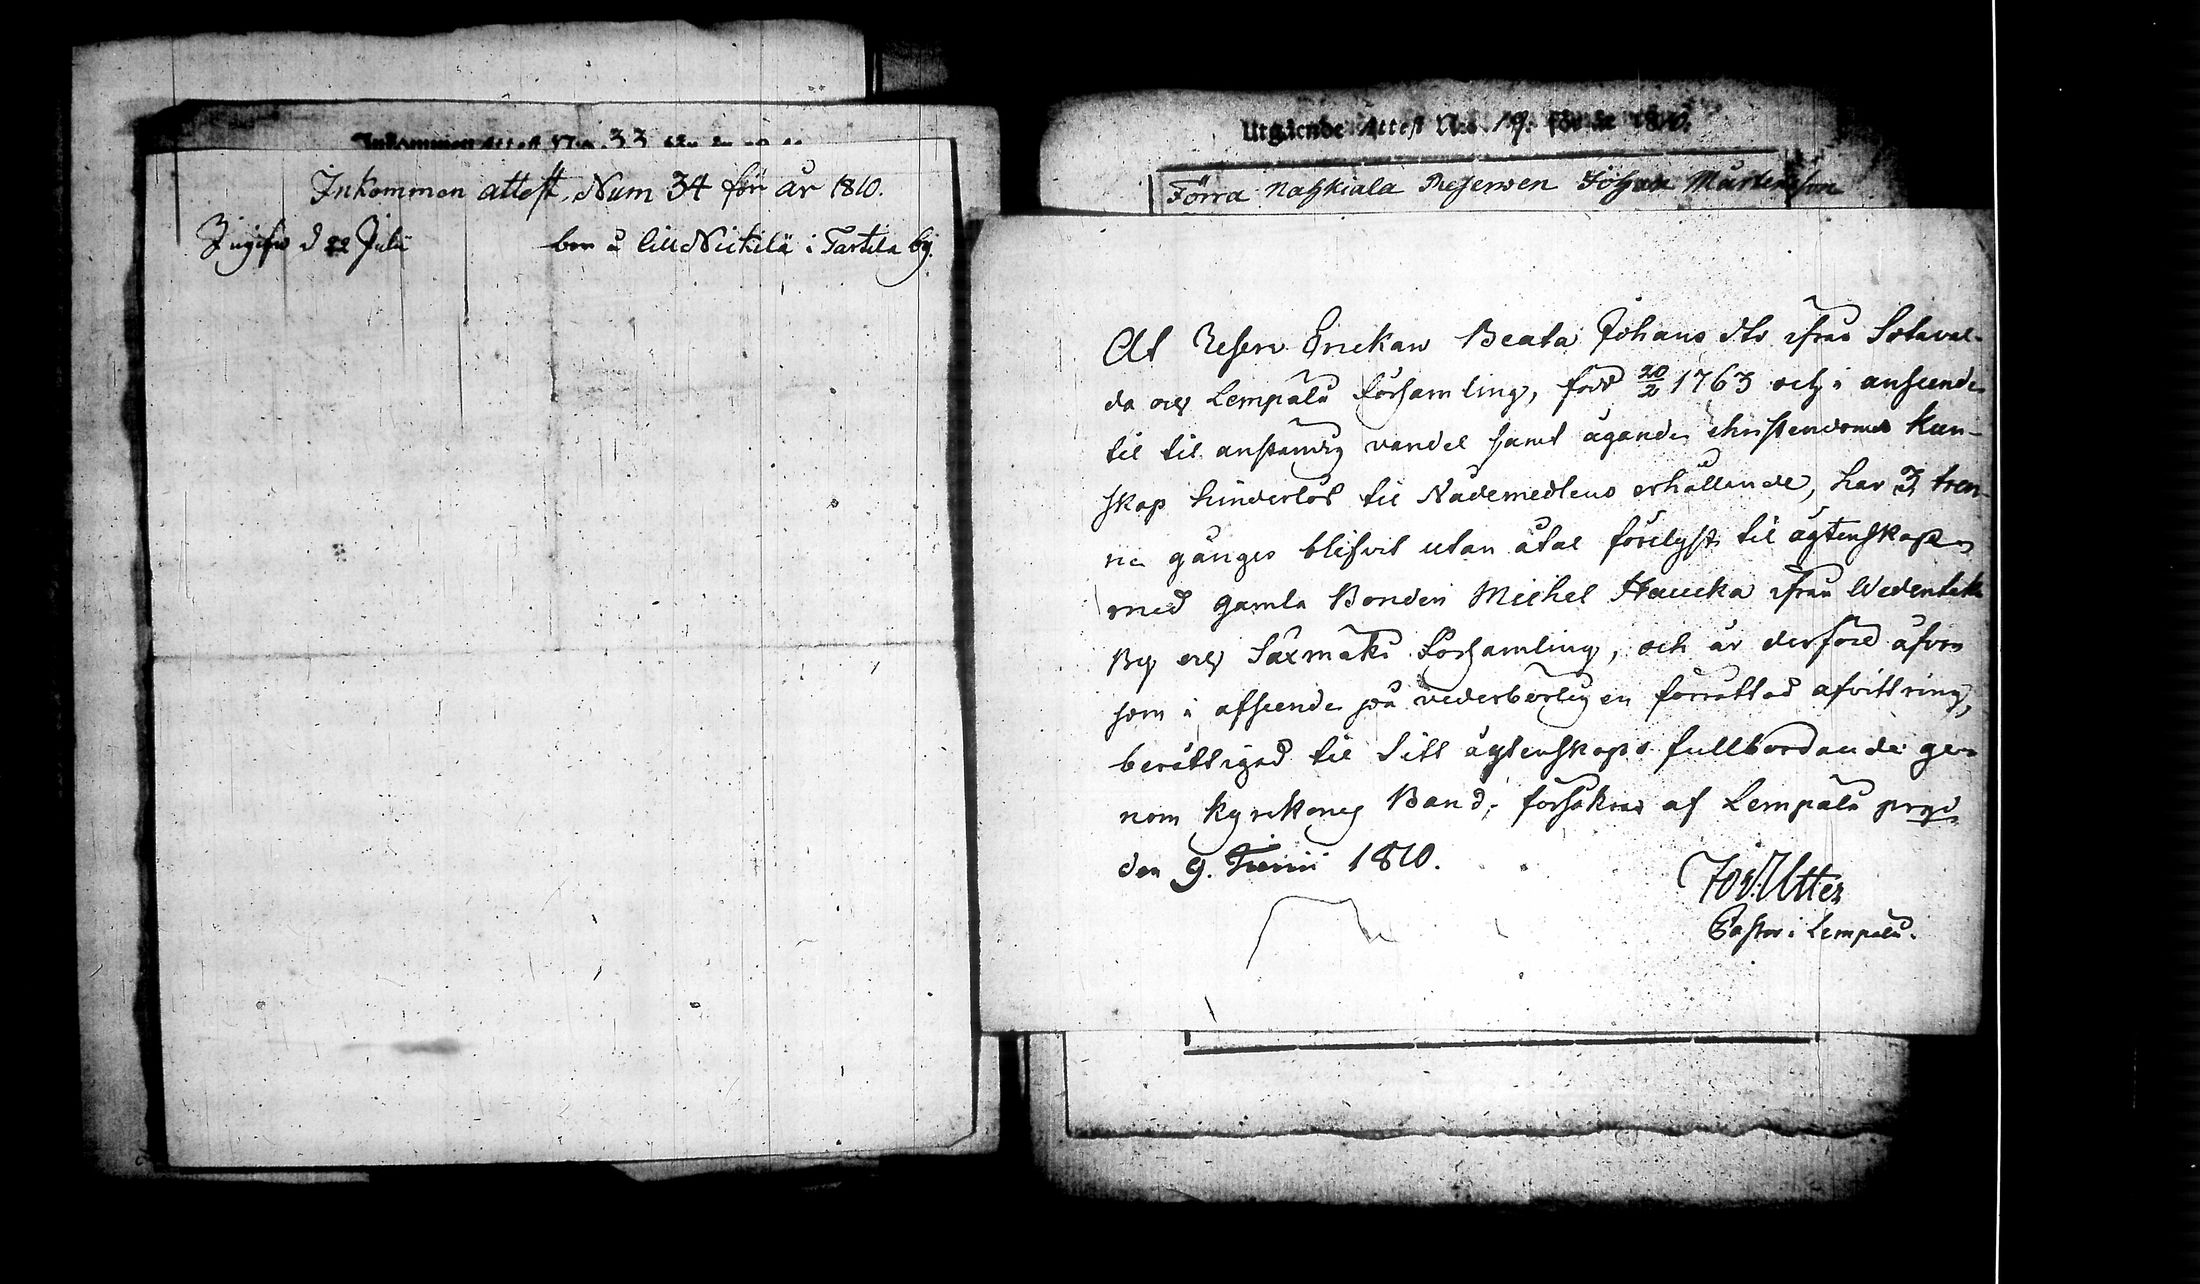 Inkommen Attest N:o 33 för år 1810
Inkommen attest, Num 34 för år 1810.
Ingifw d 22 Julii
bor å lill Nickilä i Tartila by.
Utgående Attest N:o 19. för år 1810.
Förra Nahkiala Reserwen Johan Mårtensson
At Reserv Enckan Beata Johans dtr ifrån Sotaval-
da och Lempälä Församling, född 20/2 1763 och i anseende
til til anständig vandel samt ägande christendoms kun-
skap hinderlös til Nådemedlens erhållande, har 3 tren-
ne gånger blifvit utan åtal förelyst til ägtenskap
med gamla Bonden Michel Haucka ifrån Wedentaka
By och Säxmäki Församling, och är derföre äfven
som i afseende på vederbörligen förrättad afvittring,
berättigad til sitt ägtenskaps fullbordande ge-
nom kyrkonес Band; försäkras af Lempälä prgd
den 9. Junii 1810.
Utter
Pastor i Lempälä.